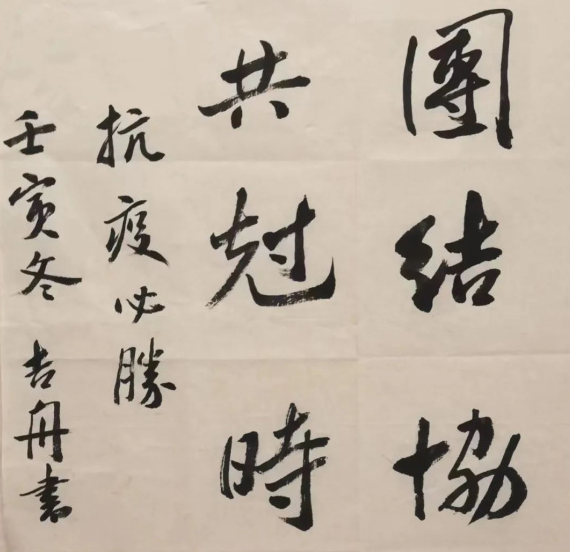 團結協
共尅時
抗疫必勝
壬寅冬 吉舟書